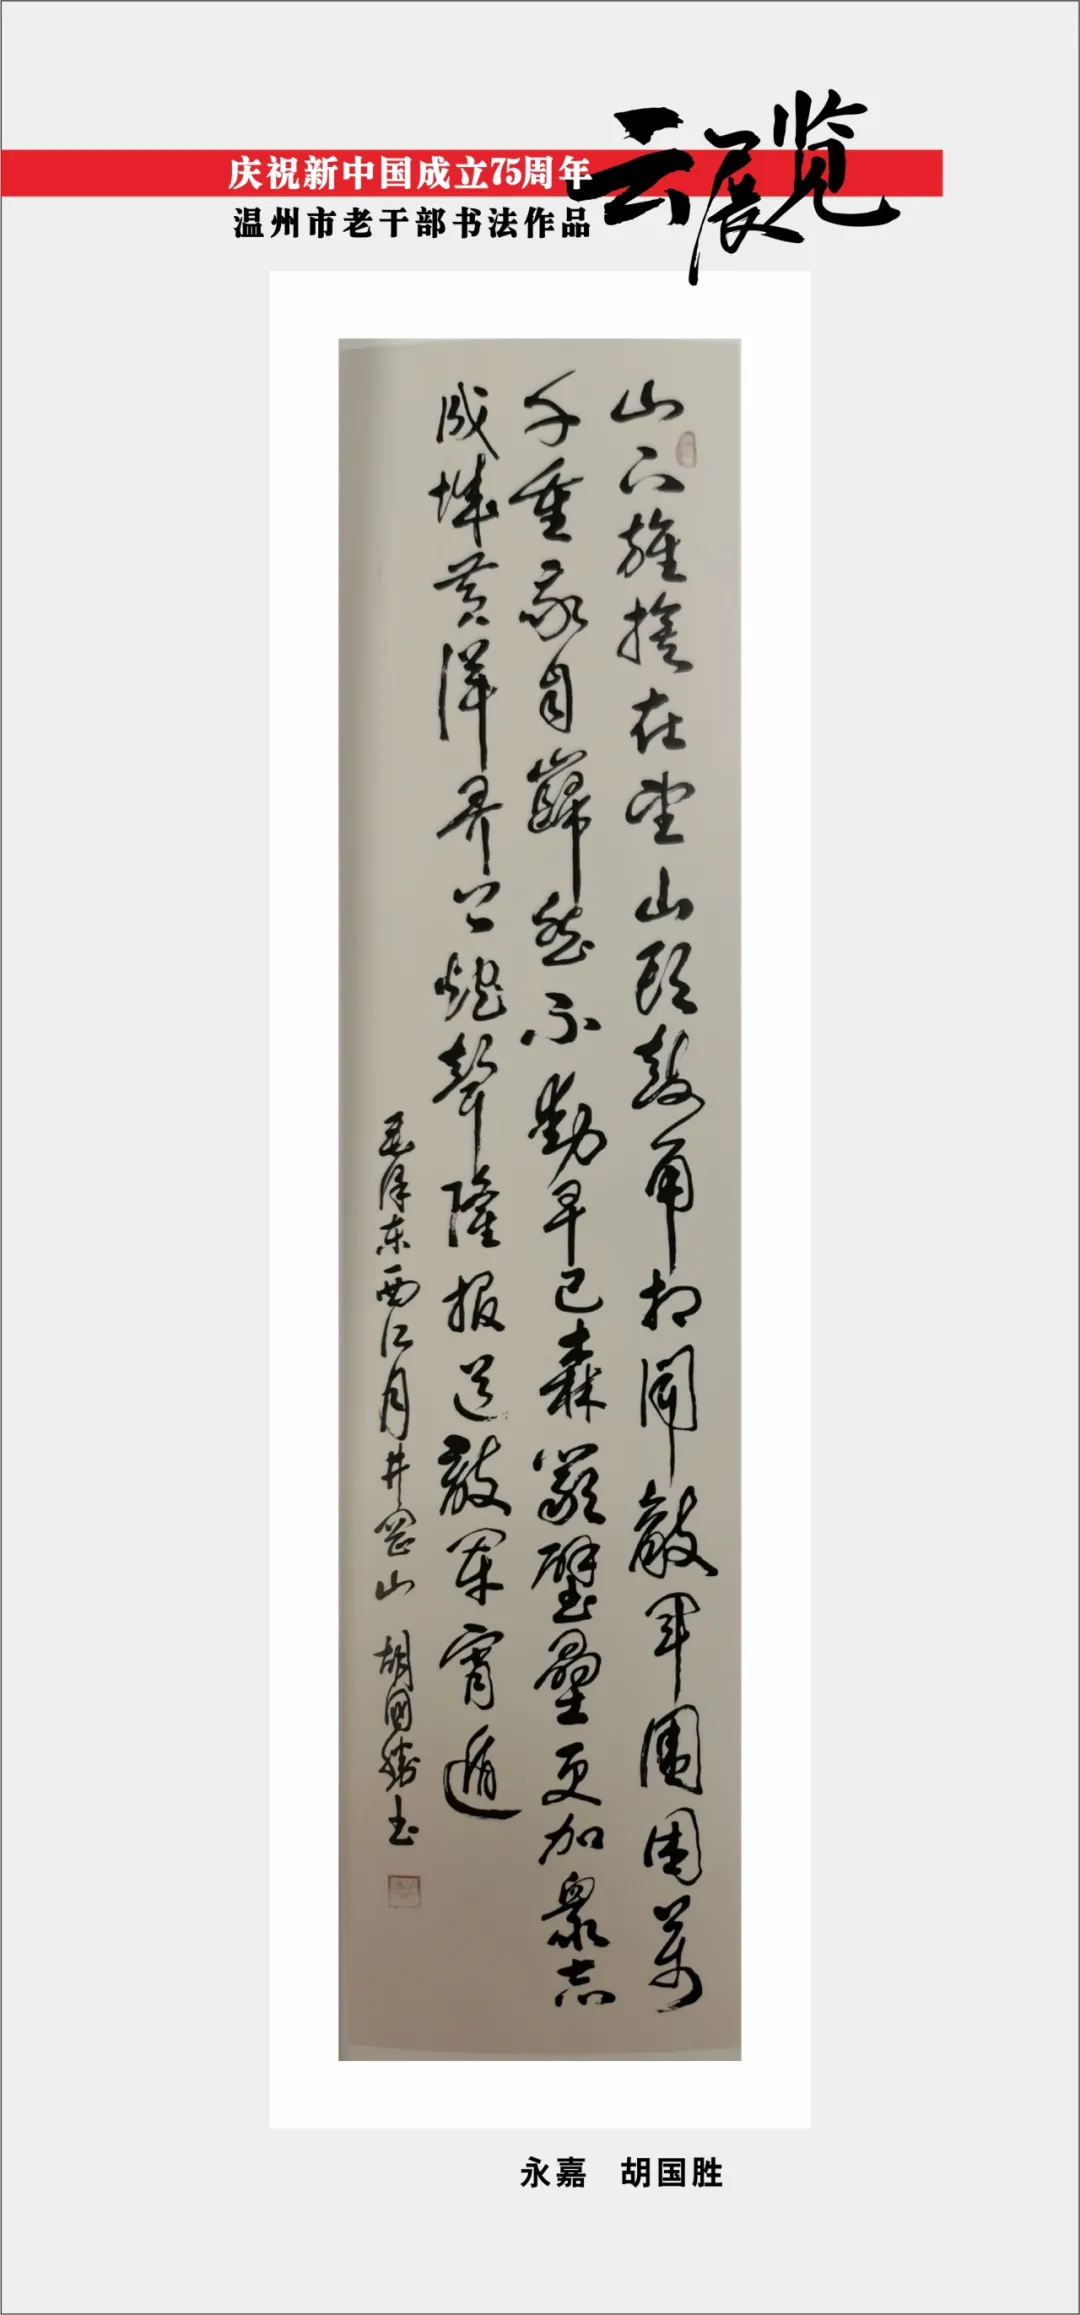 庆祝新中国成立75周年
温州市老干部书法作品
云展览
山下旌旗在望山头鼓角相闻敵军围困萬
千重我自巋然不動早已森嚴壁壘更加衆志
成城黄洋界上炮聲隆报道敵军宵遁
毛泽东西江月井岡山 胡國勝书
永嘉 胡国胜